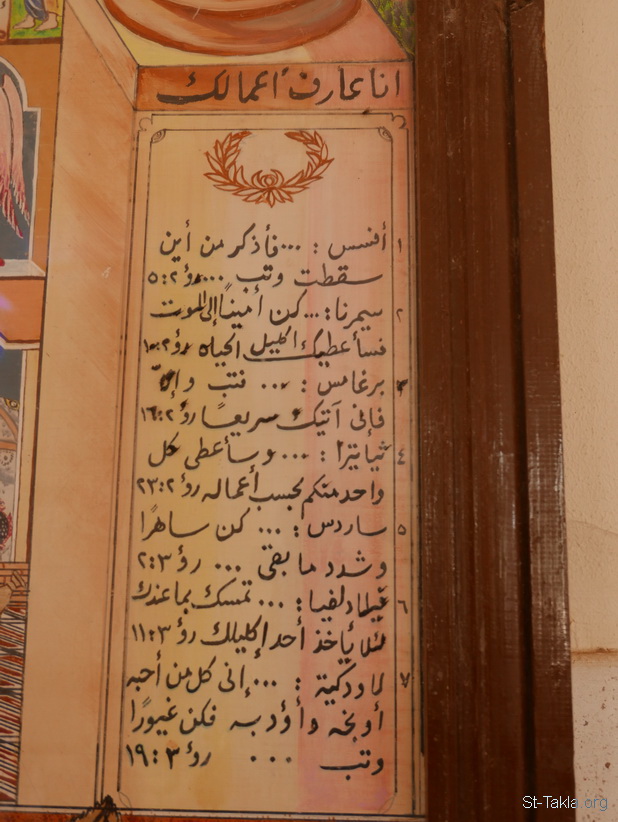 انا عارف أعمالك
١ أفسس : ... فأذكر من أين
سقطت وتب ... رؤ ٢:٥
٢ سيمرنا : ... كن أميناً إلى الموت
فسأعطيك اكليل الحياه رؤ ٢:١٠
٣ برغامس : ... فتب وإلا
فإنى آتيك سريعاً رؤ ٢:١٦
٤ ثياتيرا : ... وسأعطى كل
واحد منكم بحسب أعماله رؤ ٢:٢٣
٥ ساردس : ... كن ساهرًا
وشدد ما بقى ... رؤ ٣:٢
٦ فيلادلفيا : ... تمسك بما عندك
لئلا يأخذ أحد إكليلك رؤ ٣:١١
٧ لاودكية : ... إنى كل من أحبه
أوبخه وأؤدبه فكن غيورًا
وتب ... رؤ ٣:١٩
St-Takla.org